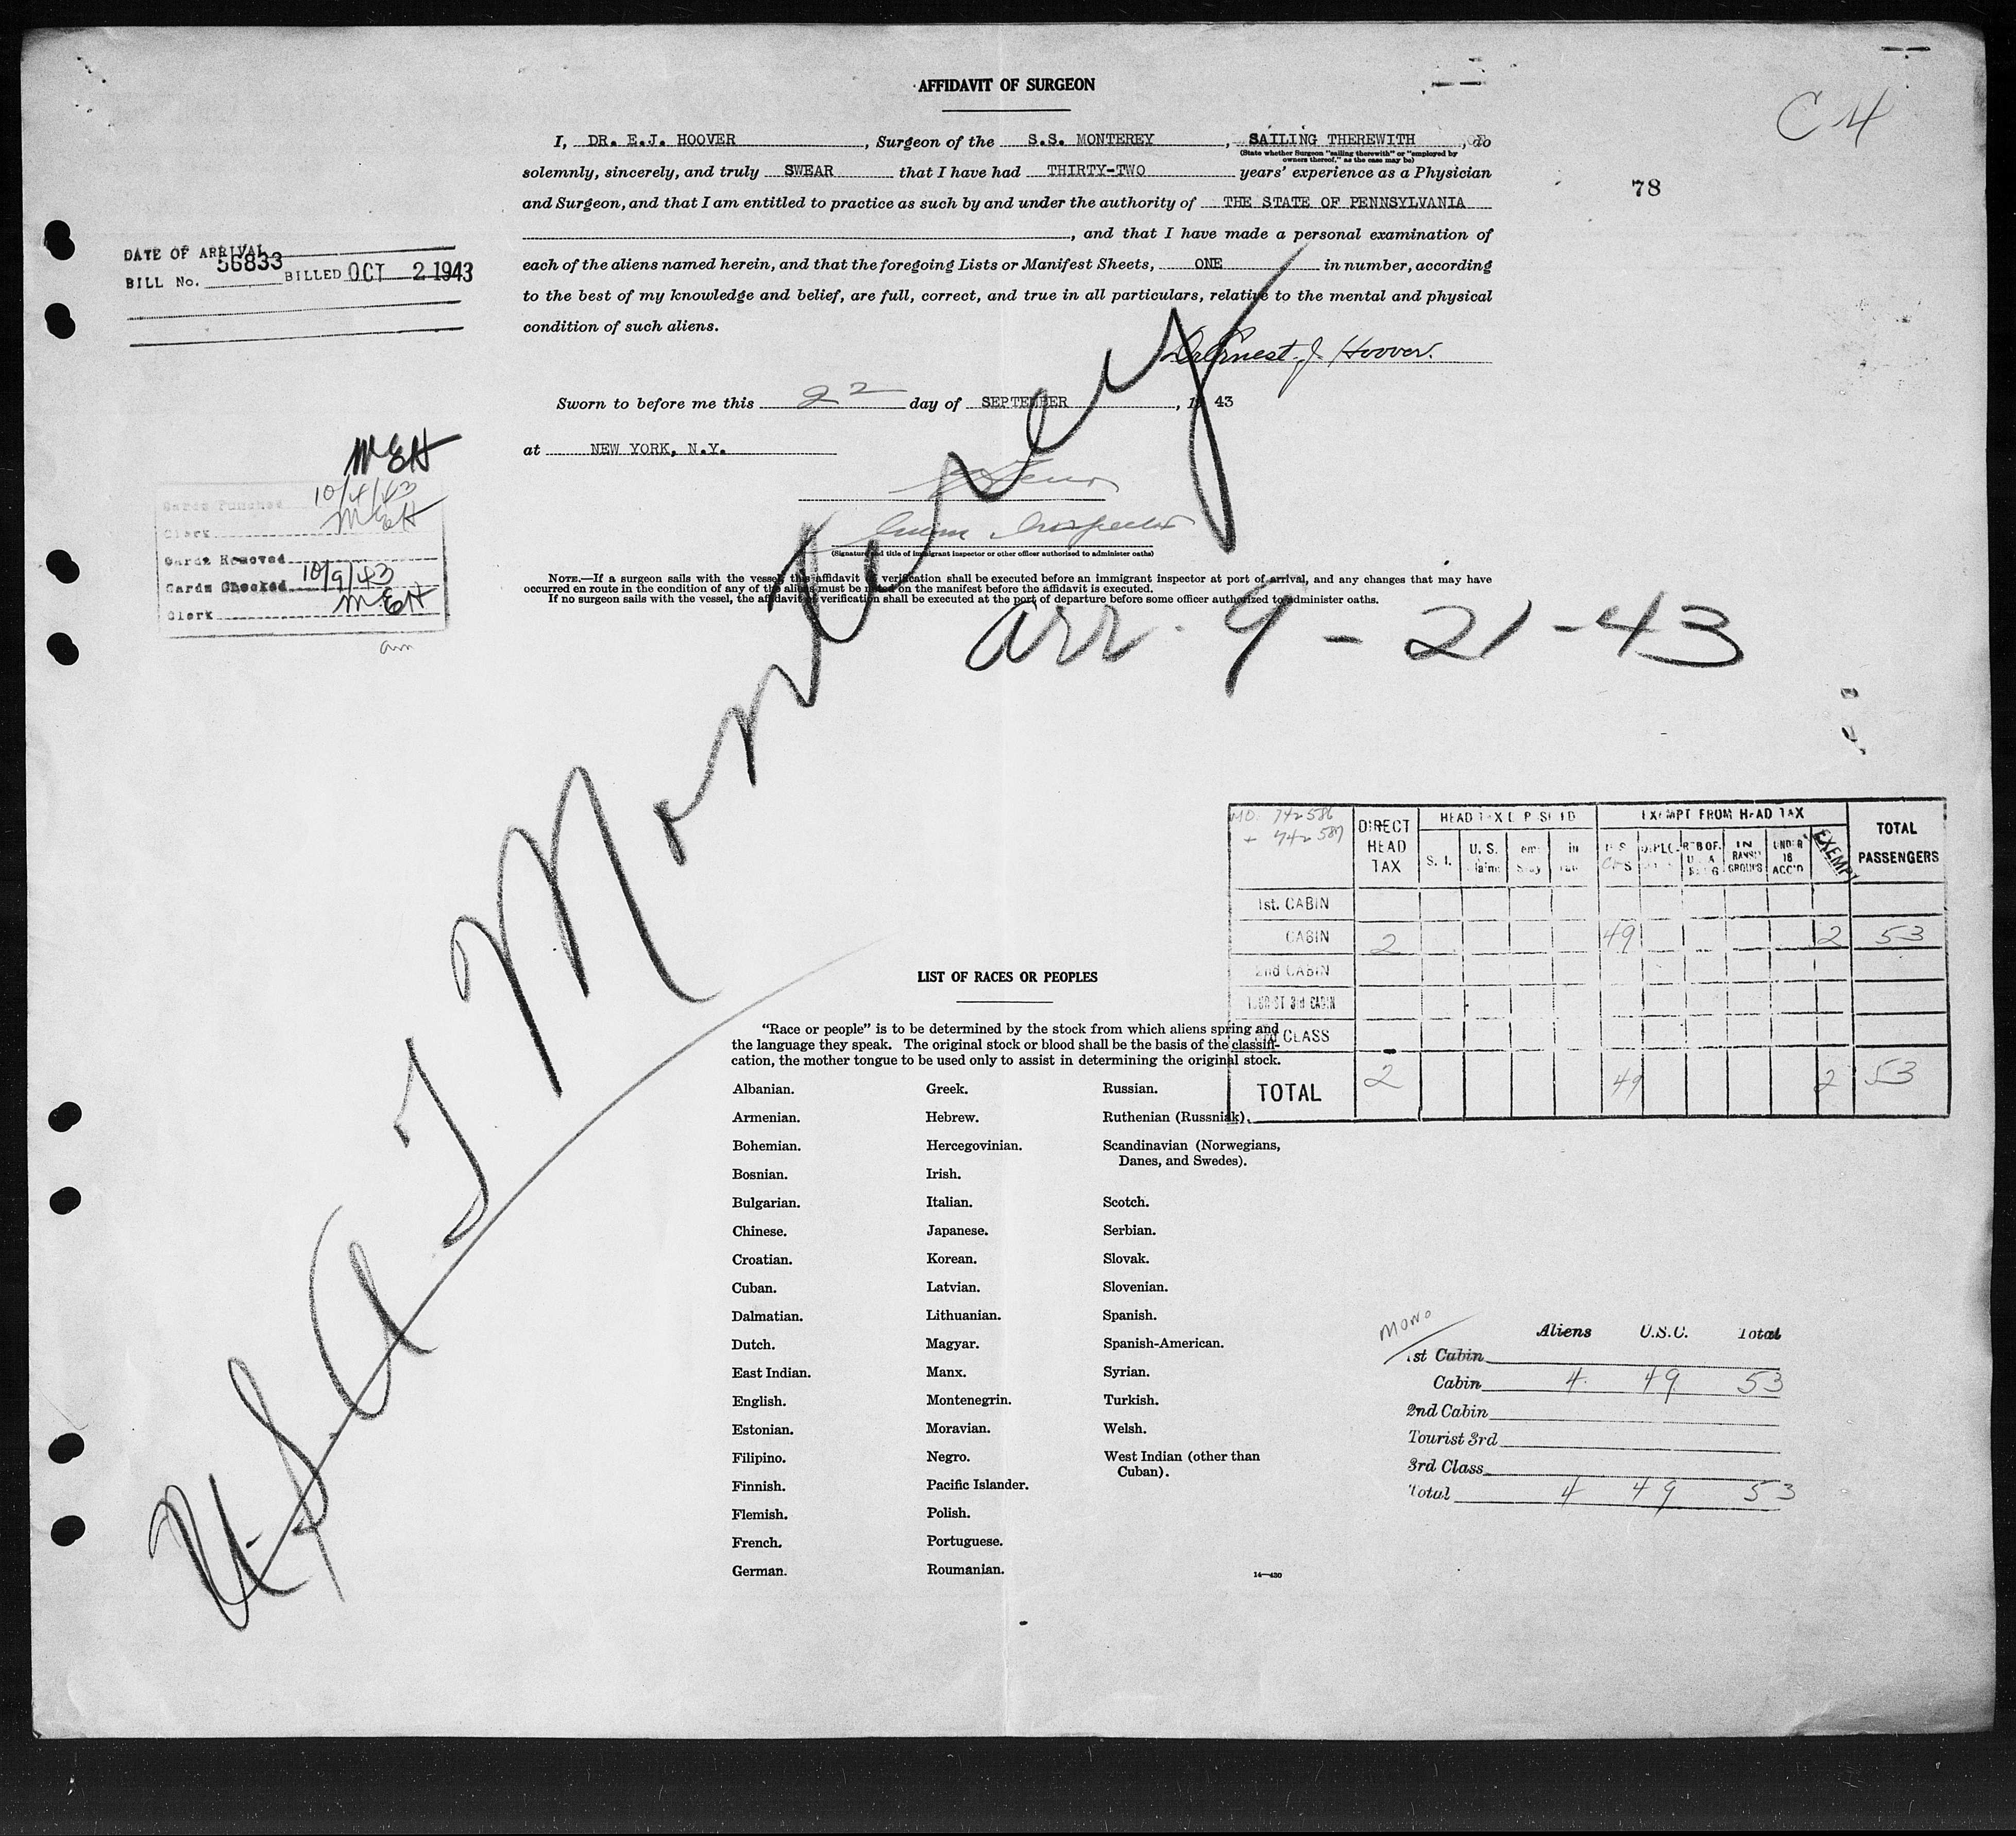 AFFIDAVIT OF SURGEON
C 4
I, DR. E.J. HOOVER, Surgeon of the S.S. MONTEREY, SAILING THEREWITH, do
(State whether Surgeon "sailing therewith" or "employed by
owners thereof," as the case may be)
solemnly, sincerely, and truly SWEAR that I have had THIRTY-TWO years' experience as a Physician
78
and Surgeon, and that I am entitled to practice as such by and under the authority of THE STATE OF PENNSYLVANIA
, and that I have made a personal examination of
each of the aliens named herein, and that the foregoing Lists or Manifest Sheets, ONE in number, according
to the best of my knowledge and belief, are full, correct, and true in all particulars, relative to the mental and physical
condition of such aliens.
DATE OF ARRIVAL
BILL No. 56833 BILLED OCT 2 1943
Dr Ernest J. Hoover.
Sworn to before me this 22 day of SEPTEMBER, 19 43
at NEW YORK, N.Y.
Imm Inspector
(Signature and title of immigrant inspector or other officer authorized to administer oaths)
MEH
Cards Punched 10/4/43
Clerk MEH
Cards Removed
Cards Checked 10/9/43
Clerk MEH
am
NOTE.—If a surgeon sails with the vessel, this affidavit of verification shall be executed before an immigrant inspector at port of arrival, and any changes that may have
occurred en route in the condition of any of the aliens must be noted on the manifest before the affidavit is executed.
If no surgeon sails with the vessel, the affidavit of verification shall be executed at the port of departure before some officer authorized to administer oaths.
arr. 9-21-43
U.S.A.T Monterey
MO. 742586
+ 742587
DIRECT HEAD TAX
HEAD TAX DEPOSITED
EXEMPT FROM HEAD TAX
TOTAL PASSENGERS
S. I. U. S.
IN TRANSIT GROUPS UNDER 16 ACC'D EXEMPT
1st. CABIN
CABIN 2 49 2 53
2nd CABIN
TOURIST 3rd CABIN
CLASS
TOTAL 2 49 2 53
LIST OF RACES OR PEOPLES
"Race or people" is to be determined by the stock from which aliens spring and
the language they speak. The original stock or blood shall be the basis of the classifi-
cation, the mother tongue to be used only to assist in determining the original stock.
Albanian.
Armenian.
Bohemian.
Bosnian.
Bulgarian.
Chinese.
Croatian.
Cuban.
Dalmatian.
Dutch.
East Indian.
English.
Estonian.
Filipino.
Finnish.
Flemish.
French.
German.
Greek.
Hebrew.
Hercegovinian.
Irish.
Italian.
Japanese.
Korean.
Latvian.
Lithuanian.
Magyar.
Manx.
Montenegrin.
Moravian.
Negro.
Pacific Islander.
Polish.
Portuguese.
Roumanian.
Russian.
Ruthenian (Russniak).
Scandinavian (Norwegians,
Danes, and Swedes).
Scotch.
Serbian.
Slovak.
Slovenian.
Spanish.
Spanish-American.
Syrian.
Turkish.
Welsh.
West Indian (other than
Cuban).
14—430
Mono
Aliens U.S.C. Total
1st Cabin
Cabin 4 49 53
2nd Cabin
Tourist 3rd
3rd Class
Total 4 49 53